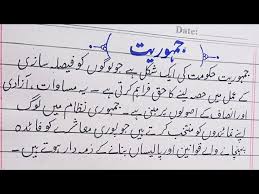 Date:
جمہوریت
جمہوریت حکومت کی ایک شکل ہے جو لوگوں کو فیصلہ سازی
کے عمل میں حصہ لینے کا حق فراہم کرتی ہے۔ یہ مساوات، آزادی
اور انصاف کے اصولوں پر مبنی ہے۔ جمہوری نظام میں لوگ
اپنے نمائندوں کو منتخب کرتے ہیں جو پورے معاشرے کو فائدہ
پہنچانے والے قوانین اور پالیساں بنانے کے ذمہ دار ہوتے ہیں۔